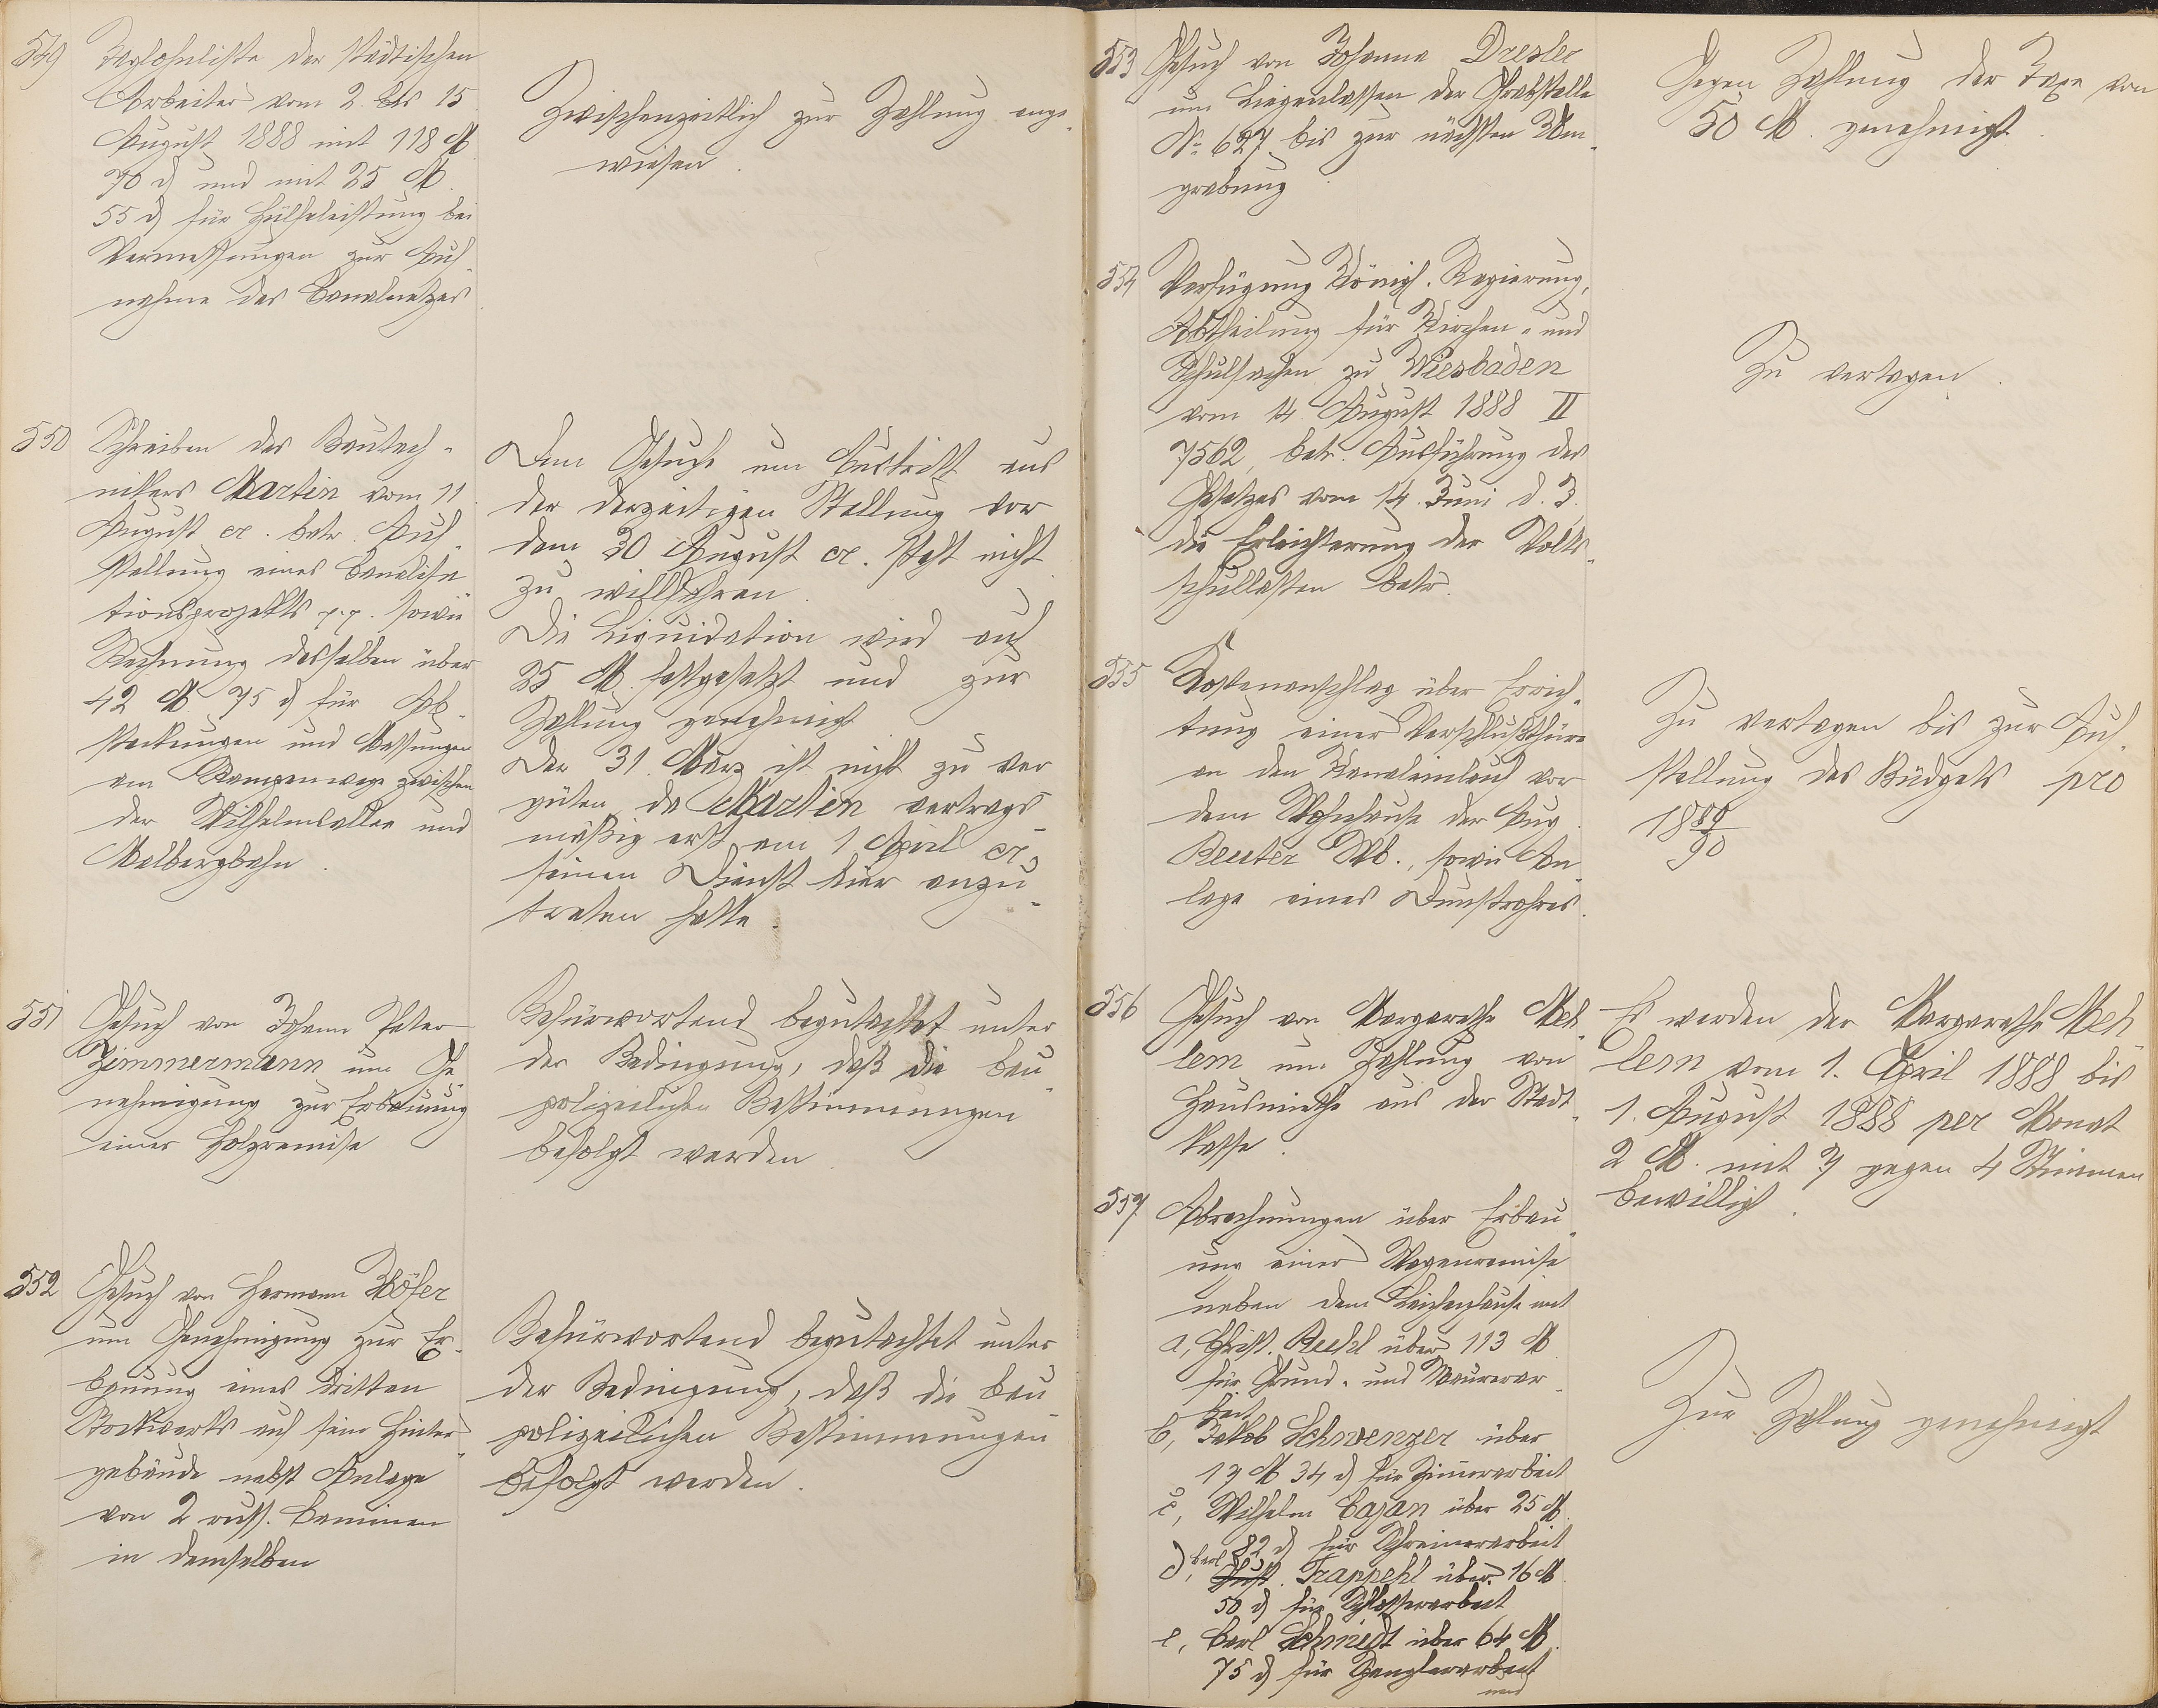 549
Taglohnliste der städtischen
Arbeiter vom 2. bis 15
August 1888 mit 118 M
70 d und mit 25 M.
55 d für Hülfeleistung bei
Vermessungen zur Auf-
nahme des Canalnetzes
Zwischenzeitlich zur Zahlung ange-
wiesen.
550
Schreiben des Bautech-
nikers Martin vom 11
August cr. betr. Auf-
stellung eines Canalisa-
tionsprojekts p.p. sowie
Rechnung desselben über
42 M 75 d für Ab-
steckungen und Messungen
am Rampenwege zwischen
der Wilhelmsallee und
Malbergbahn.
Dem Gesuche um Austritt aus
der derzeitigen Stellung vor
dem 30 August cr. steht nicht
zu willfahren.
Die Liquidation wird auf
25 M. festgesetzt und zur
Zahlung genehmigt
Der 31. März ist nicht zu ver
güten, da Martin vertrags-
mäßig erst am 1 April cr.
seinen Dienst hier anzu-
treten hatte.
551
Gesuch von Johann Peter
Zimmermann um Ge-
nehmigung zur Erbauung
einer Holzremise
Befürwortend begutachtet unter
der Bedingung, daß die bau-
polizeilichen Bestimmungen
befolgt werden.
552
Gesuch von Hermann Höfer
um Genehmigung zur Er-
bauung eines dritten
Stockwerks auf sein Hinter-
gebäude nebst Anlage
von 2 russ. Caminen
in demselben
Befürwortend begutachtet unter
der Bedingung, daß die bau-
polizeilichen Bestimmungen
befolgt werden.
553
Gesuch von Johanna Dresler
um Liegenlassen der Grabstelle
No 627 bis zur nächsten Um-
grabung
Gegen Zahlung der Taxe von
50 M. genehmigt.
554
Verfügung Königl. Regierung,
Abtheilung für Kirchen- und
Schulsachen zu Wiesbaden
vom 14 August 1888 II
7562, betr. Ausführung des
Gesetzes vom 14. Juni d. J.
die Erleichterung der Volks-
schullasten betr.
Zu vertagen.
555
Kostenanschlag über Errich-
tung einer Verschlußthüre
an den Kanaleinlauf vor
dem Wohnhause der Aug.
Reuter Wb., sowie An-
lage eines Dunstrohres.
Zu vertagen bis zur Auf-
stellung des Büdgets pro
1889/90
556
Gesuch von Margarethe Meh-
lem um Zahlung von
Hausmiethe aus der Stadt-
kasse.
Es werden der Margarethe Meh-
lem vom 1. April 1888 bis
1. August 1888 per Monat
2 M. mit 7 gegen 4 Stimmen
bewilligt.
557
Abrechnungen über Erbau-
ung einer Wagenremise
neben dem Leichenhause mit
a, Christ. Buchl über 113 M
für Grund- und Maurerar-
beit
b, Jakob Schwenzer über
17 M 34 d für Zimmerarbeit
c, Wilhelm Cajan über 25 M.
82 d für Schreinerarbeit
d, Carl Trappehl über 16 M
50 d für Schlosserarbeit
e, Carl Schmidt über 64 M.
75 d für Spenglerarbeit
und
Zur Zahlung genehmigt